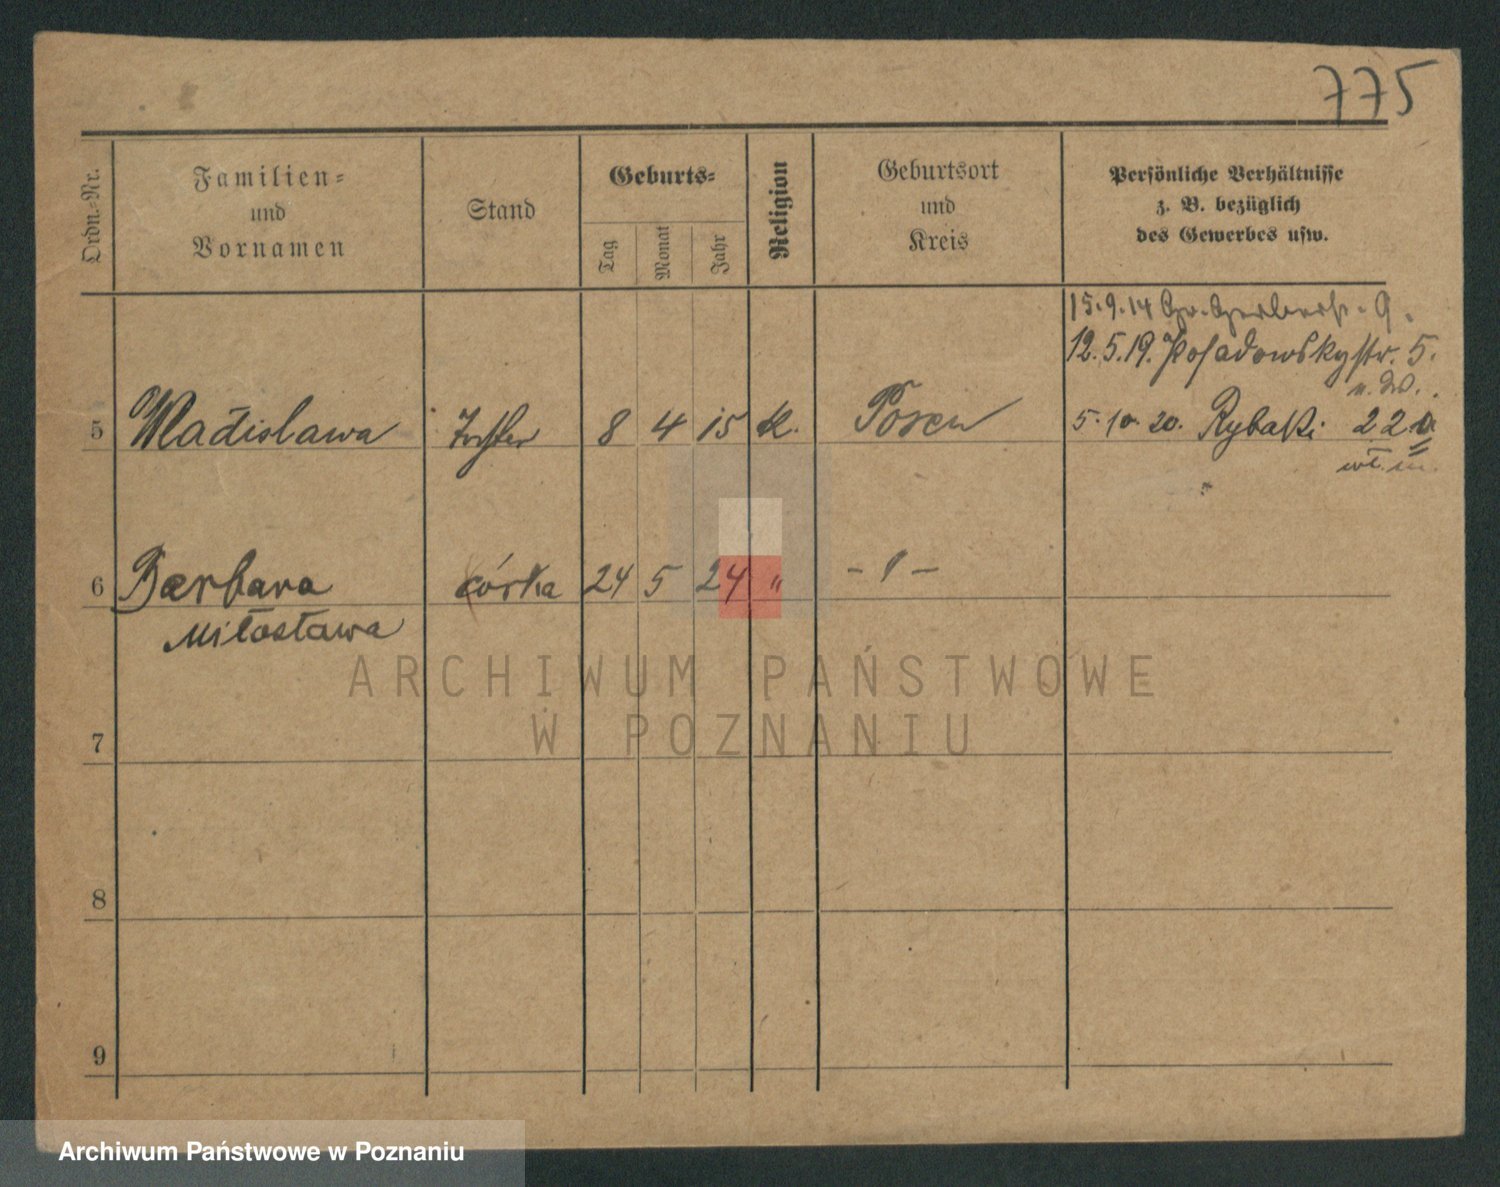 775
Ordn.-Nr.
Familien-
und
Vornamen
Stand
Geburts-
Tag
Monat
Jahr
Religion
Geburtsort
und
Kreis
Persönliche Verhältnisse
z. B. bezüglich
des Gewerbes usw.
15.9.14 Gr. Gerberstr. 9.
12.5.19. Posadowskystr. 5.
5 Wladislawa Tochter 8 4 15 k. Posen 5.10.20. Rybaki 22a
6 Barbara córka 24 5 24 " - " -
Miłosława
7
8
9
ARCHIWUM PAŃSTWOWE
W POZNANIU
Archiwum Państwowe w Poznaniu